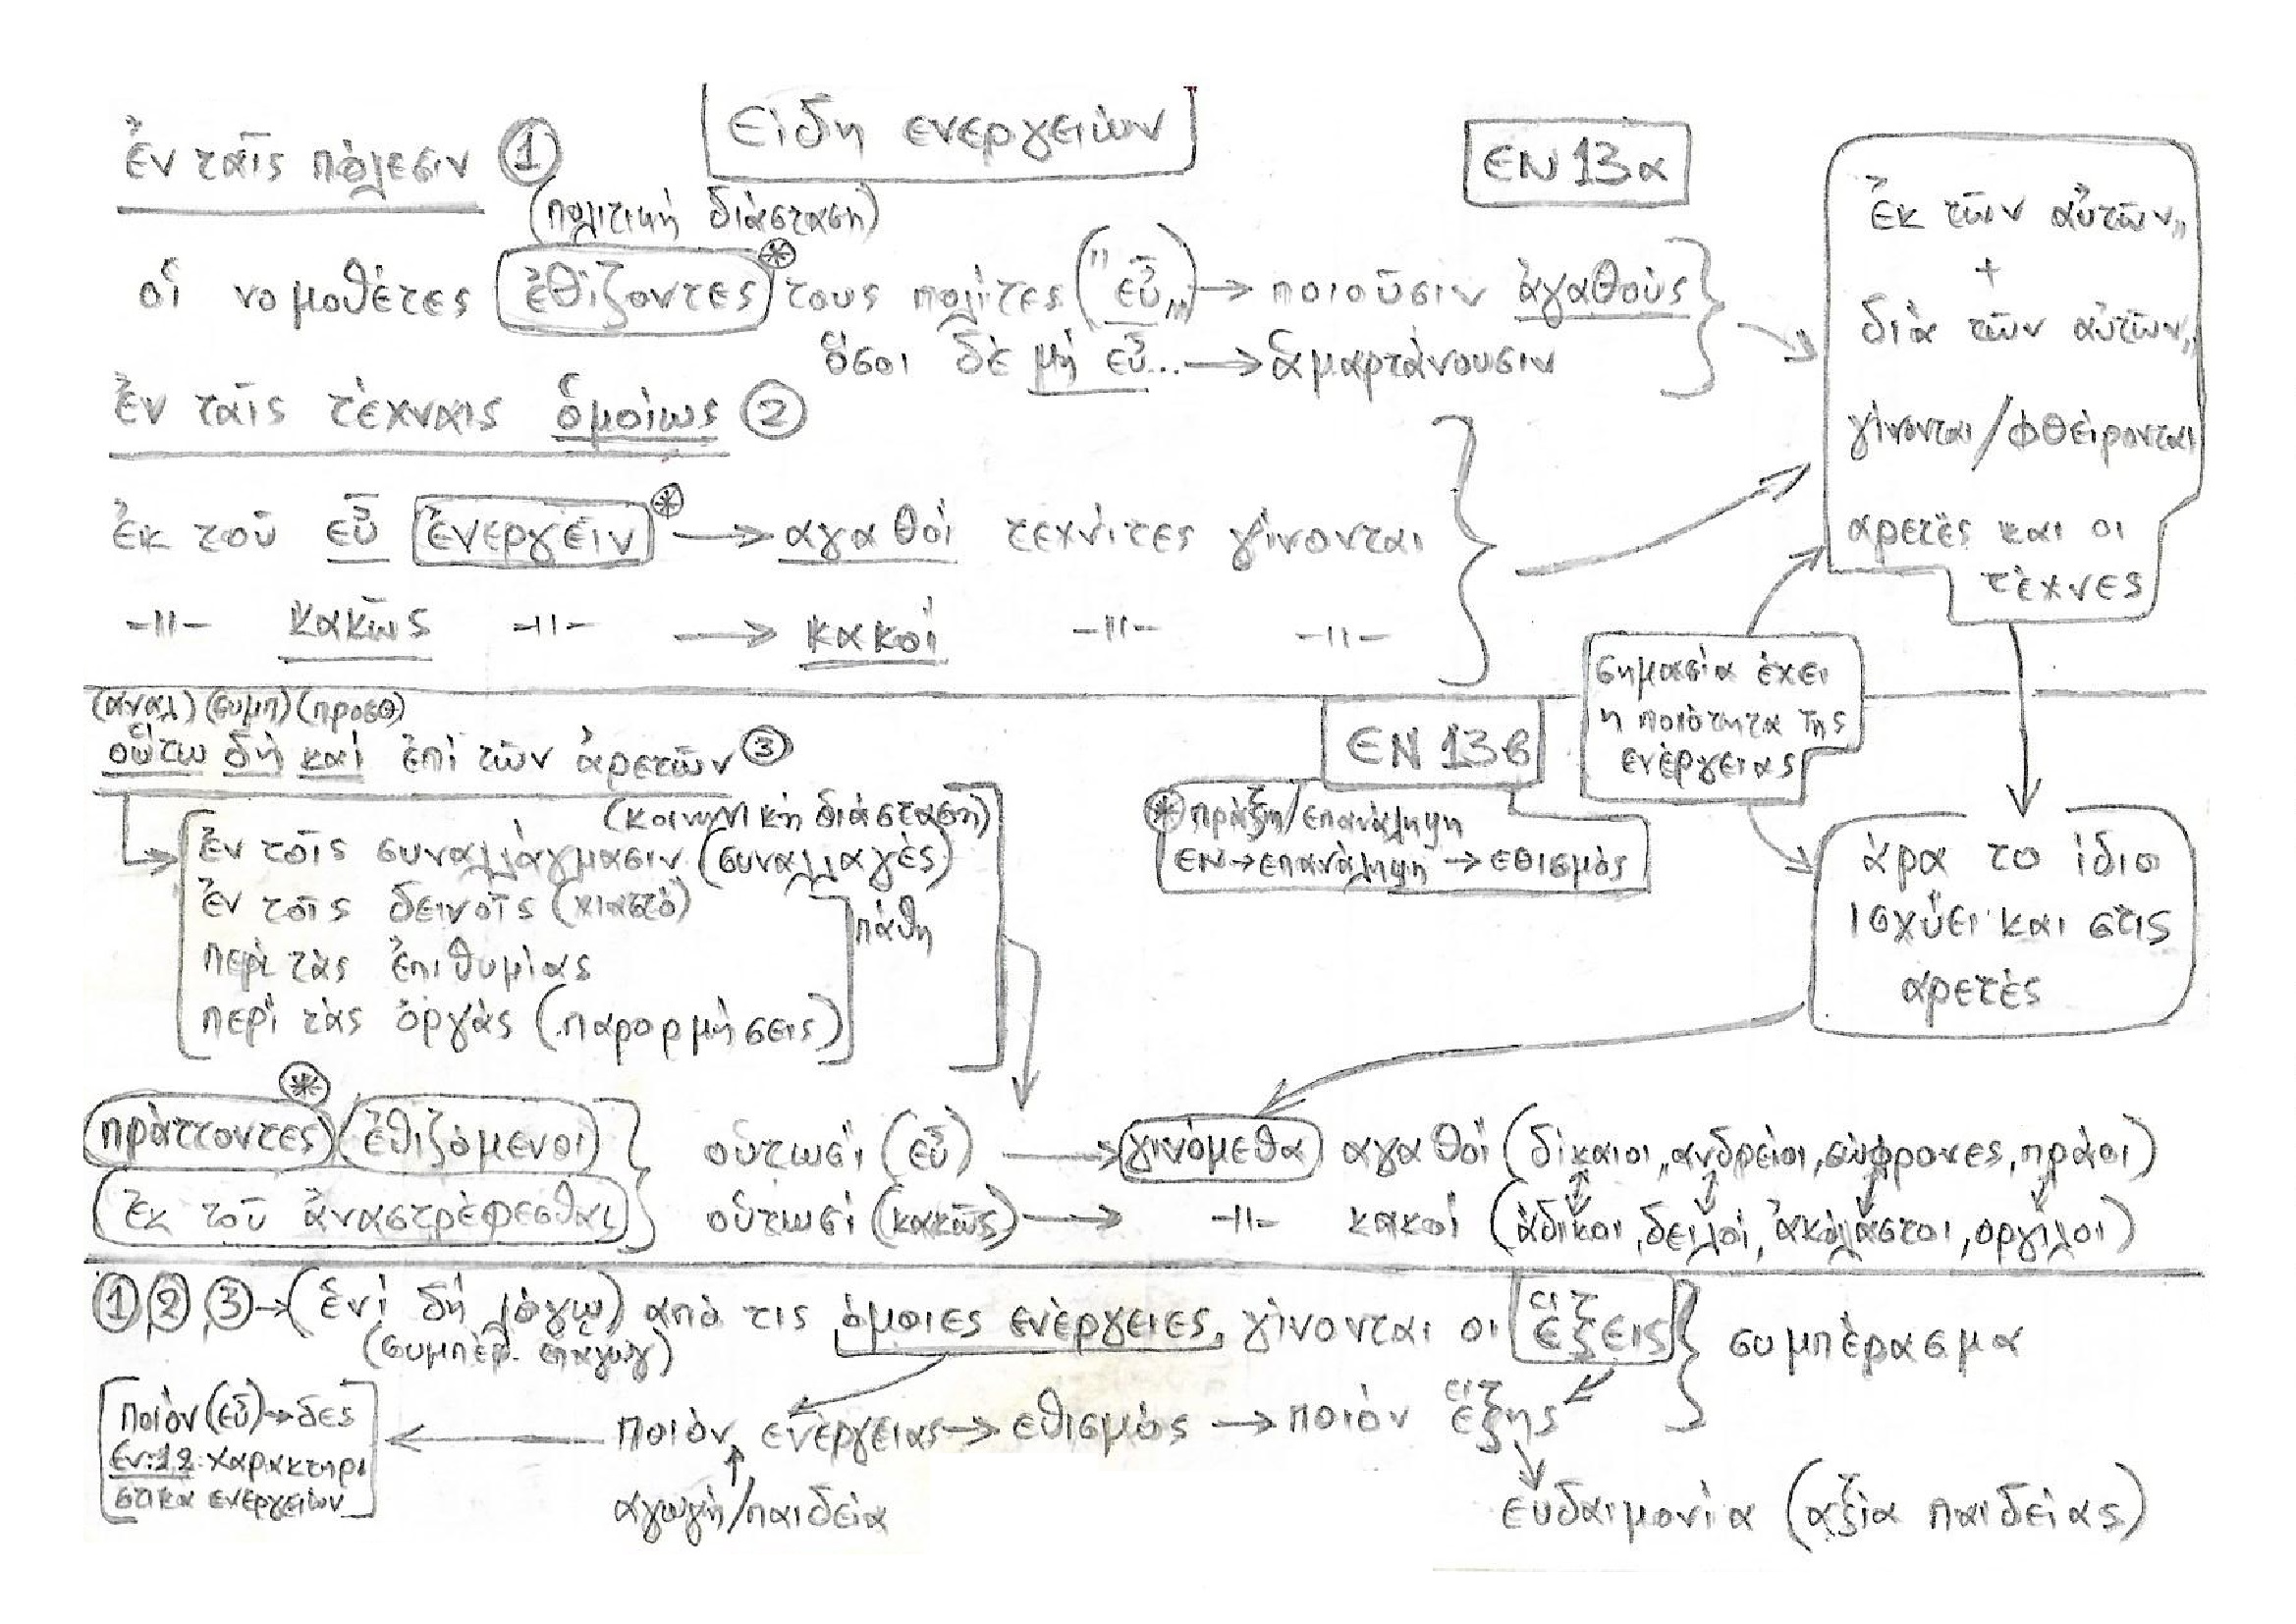 Εἴδη ενεργειών
ΕΝ 13α
Ἐν ταῖς πόλεσιν ①
(πολιτική διάσταση)
οἱ νομοθέτες ἐθίζοντες * τους πολίτες ("εὖ") → ποιοῦσιν ἀγαθούς
ὅσοι δέ μή εὖ... → ἁμαρτάνουσιν
Ἐν ταῖς τέχναις ὁμοίως ②
ἐκ τοῦ εὖ ἐνεργεῖν * → αγαθοί τεχνίτες γίνονται
-||- κακῶς -||- → κακοί -||- -||-
Ἐκ τῶν αὐτῶν,,
+
διά τῶν αὐτῶν,,
γίνονται/φθείρονται
αρετές και οι
τέχνες
σημασία έχει
η ποιότητα της
ενέργειας
(αναλ) (συμπ) (προσθ)
οὕτω δή καί ἐπί τῶν ἀρετῶν ③
ΕΝ 13β
(κοινωνική διάσταση)
ἐν τοῖς συναλλάγμασιν (συναλλαγές)
ἐν τοῖς δεινοῖς (χιαστό)
περί τάς ἐπιθυμίας
περί τάς ὀργάς (παρορμήσεις)
πάθη
* πράξη/επανάληψη
ΕΝ → επανάληψη → εθισμός
άρα το ίδιο
ισχύει και στις
αρετές
πράττοντες * ἐθιζόμενοι οὑτωσί (εὖ) → γινόμεθα αγαθοί (δίκαιοι, ανδρείοι, σώφρονες, πράοι)
ἐκ τοῦ ἀναστρέφεσθαι οὑτωσί (κακῶς) → -||- κακοί (άδικοι, δειλοί, ἀκόλαστοι, οργίλοι)
① ② ③ → (ἑνί δή λόγῳ) από τις όμοιες ενέργειες, γίνονται οι ἕξεις
(συμπέρ. επαγωγ)
συμπέρασμα
ποιόν ενέργειας → εθισμός → ποιόν ἕξης
ποιόν (εὖ) → δες
εν:12 χαρακτηρι
στικά ενεργειών
αγωγή/παιδεία
ευδαιμονία (αξία παιδείας)